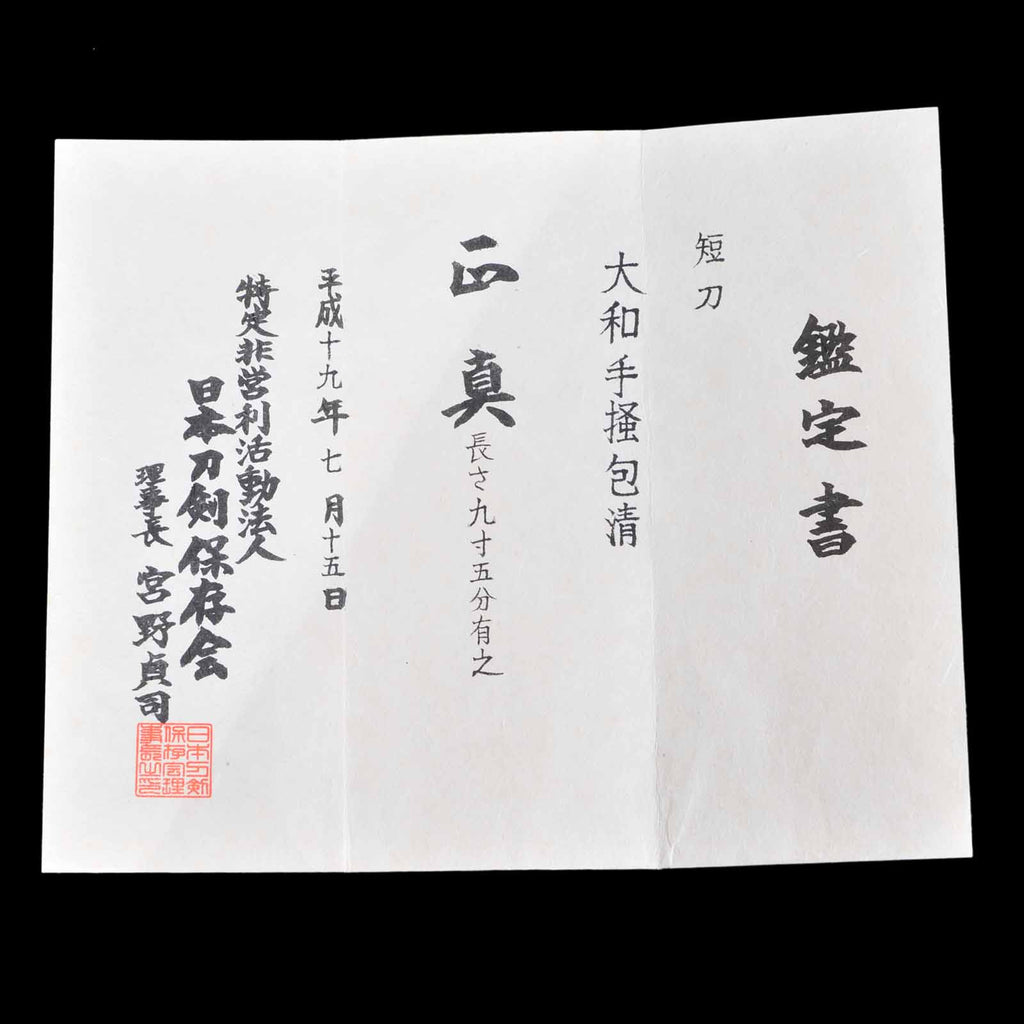 鑑定書
短刀
大和手掻包清
正真
長さ九寸五分有之
平成十九年七月十五日
特定非営利活動法人
日本刀剣保存会
理事長 宮野貞司
日本刀剣
保存会理
事長之印